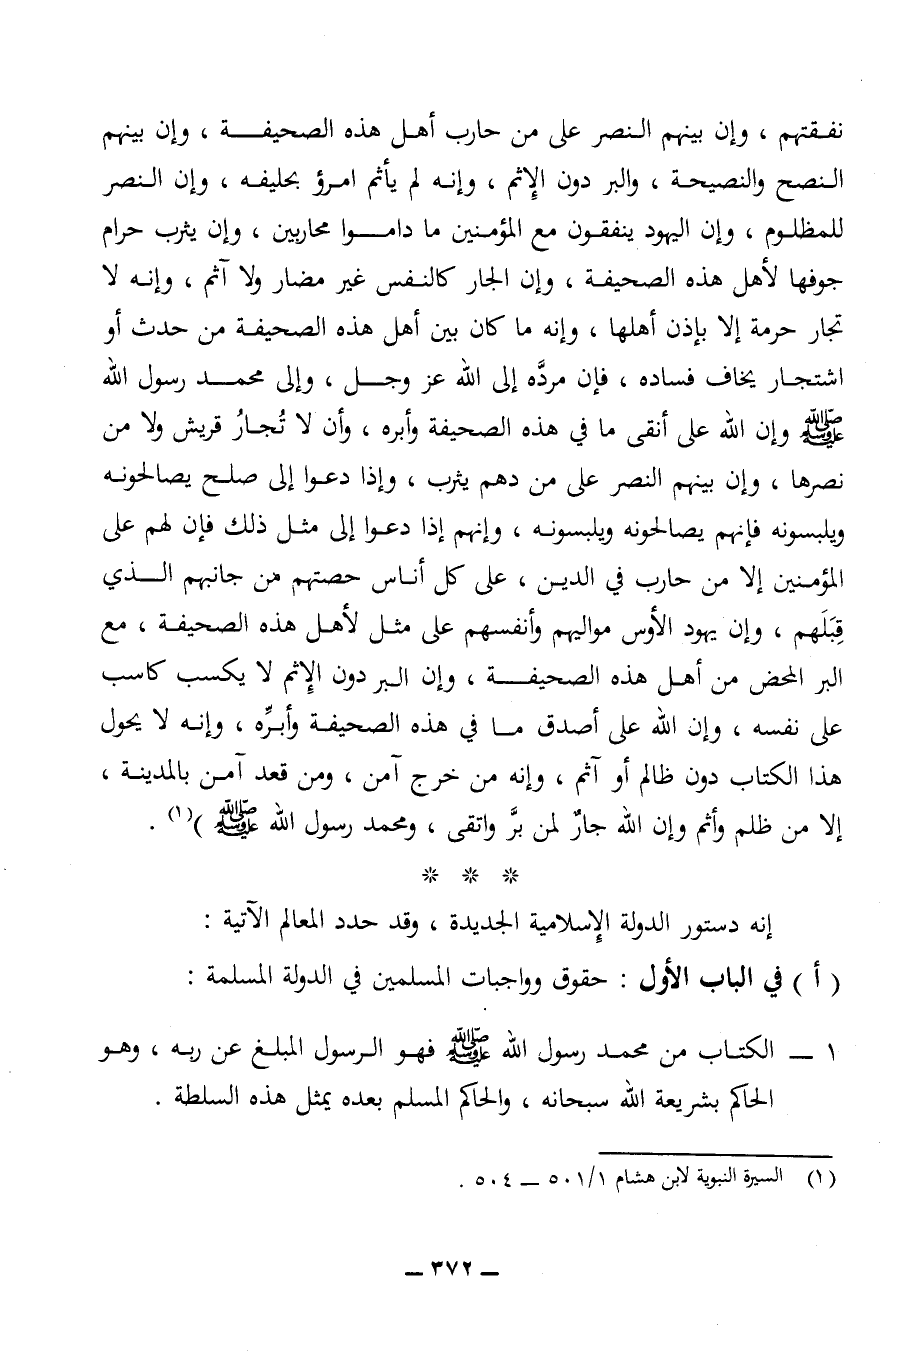 نفقتهم ، وإن بينهم النصر على من حارب أهل هذه الصحيفة ، وإن بينهم
النصح والنصيحة ، والبر دون الإثم ، وإنه لم يأثم امرؤ بحليفه ، وإن النصر
للمظلوم ، وإن اليهود ينفقون مع المؤمنين ما داموا محاربين ، وإن يثرب حرام
جوفها لأهل هذه الصحيفة ، وإن الجار كالنفس غير مضار ولا آثم ، وإنه لا
تجار حرمة إلا بإذن أهلها ، وإنه ما كان بين أهل هذه الصحيفة من حدث أو
اشتجار يخاف فساده ، فإن مردَّه إلى الله عز وجل ، وإلى محمد رسول الله
ﷺ وإن الله على أنقى ما في هذه الصحيفة وأبره ، وأن لا تُجارُ قريش ولا من
نصرها ، وإن بينهم النصر على من دهم يثرب ، وإذا دعوا إلى صلح يصالحونه
ويلبسونه فإنهم يصالحونه ويلبسونه ، وإنهم إذا دعوا إلى مثل ذلك فإن لهم على
المؤمنين إلا من حارب في الدين ، على كل أناس حصتهم من جانبهم الذي
قِبَلَهم ، وإن يهود الأوس مواليهم وأنفسهم على مثل لأهل هذه الصحيفة ، مع
البر المحض من أهل هذه الصحيفة ، وإن البر دون الإثم لا يكسب كاسب
على نفسه ، وإن الله على أصدق ما في هذه الصحيفة وأبرِّه ، وإنه لا يحول
هذا الكتاب دون ظالم أو آثم ، وإنه من خرج آمن ، ومن قعد آمن بالمدينة ،
إلا من ظلم وأثم وإن الله جارٌ لمن برَّ واتقى ، ومحمد رسول الله ﷺ )(١) .
* * *
إنه دستور الدولة الإسلامية الجديدة ، وقد حدد المعالم الآتية :
( أ ) في الباب الأول : حقوق وواجبات المسلمين في الدولة المسلمة :
١ — الكتاب من محمد رسول الله ﷺ فهو الرسول المبلغ عن ربه ، وهو
الحاكم بشريعة الله سبحانه ، والحاكم المسلم بعده يمثل هذه السلطة .
(١) السيرة النبوية لابن هشام ٥٠١/١ — ٥٠٤ .
— ٣٧٢ —